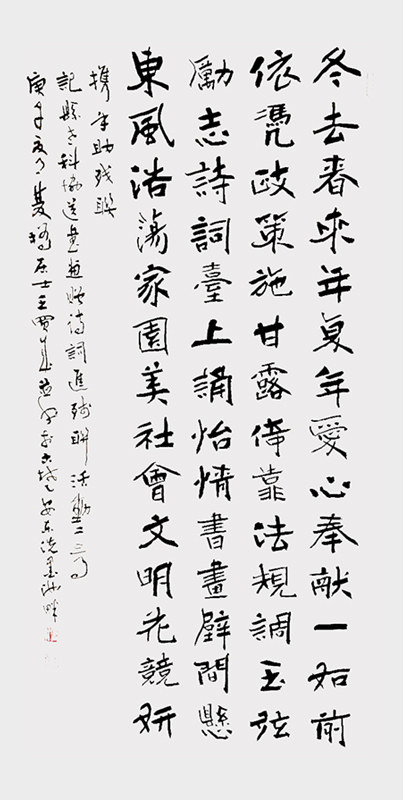 冬去春來年复年愛心奉献一如前
依憑政策施甘露倚靠法規調玉弦
勵志詩詞臺上誦怡情書畫壁間懸
東風浩蕩家園美社會文明花競妍
携手助残聯
記縣老科協送畫書贈詩詞進殘聯活動
庚子夏月